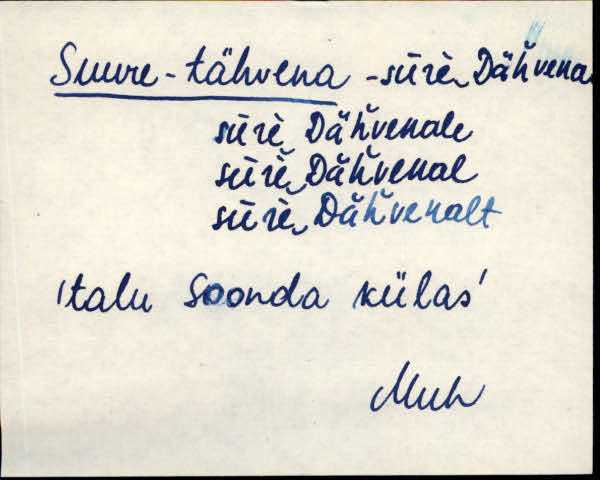 Suure-tähvena - sūrè‿Däh̆vena
sūrè‿Däh̆venale
sūrè‿Däh̆venal
sūrè‿Däh̆venalt
'talu Soonda külas'
Muh